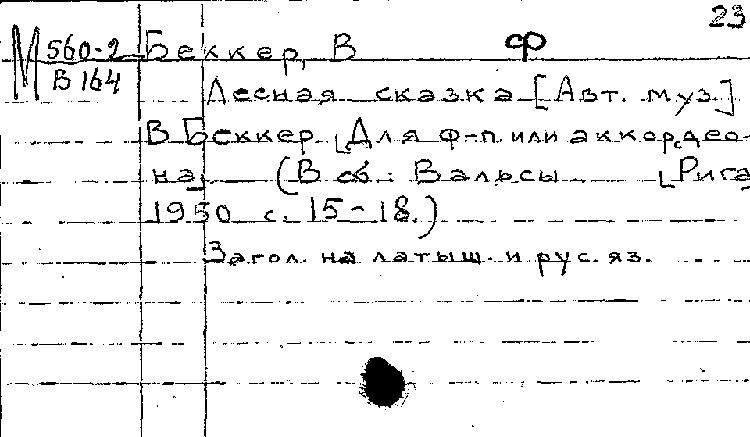 23
М 560-2 Беккер, В ф
В 164
Лесная сказка [Авт. муз.]
В Беккер. [Для ф-п. или аккордео-
на] (В сб: Вальсы [Рига
1950 с. 15-18.)
Загол. на латыш. и рус. яз.